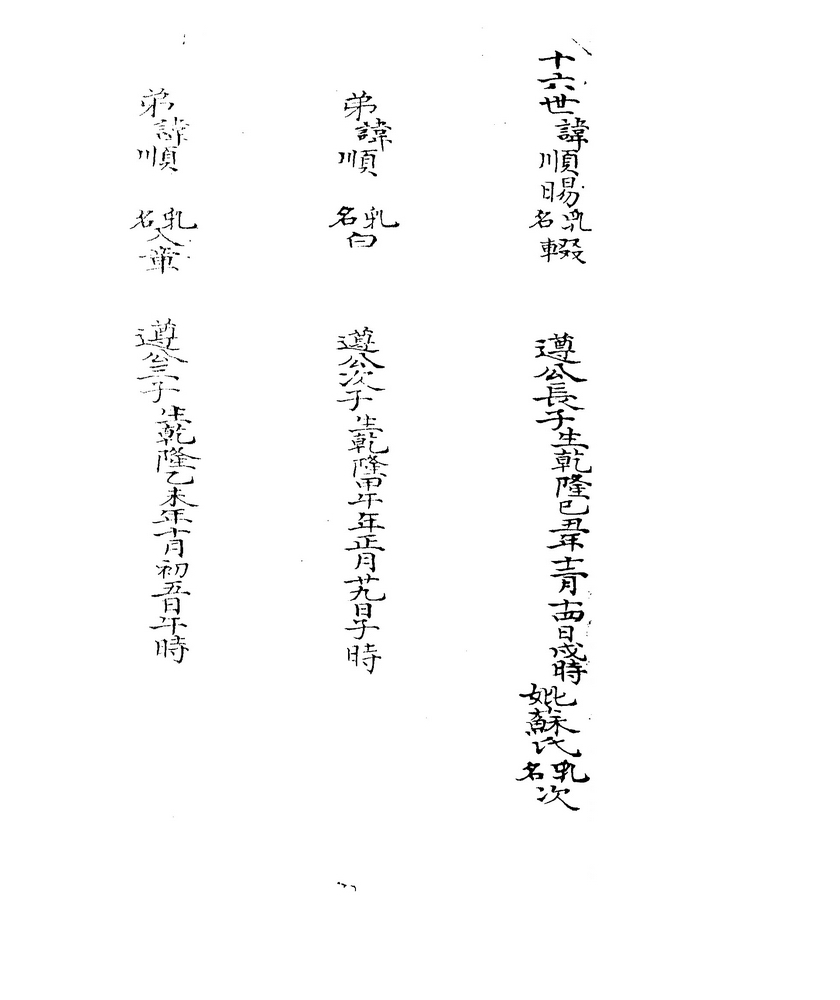 十六世諱順賜乳名輟 遵公長子生乾隆己丑年十二月十四日戌時妣蘇氏乳名次
弟諱順 乳名白 遵公次子生乾隆甲午年正月廿九日子時
弟諱順 乳名章 遵公三子生乾隆乙未年十月初五日午時